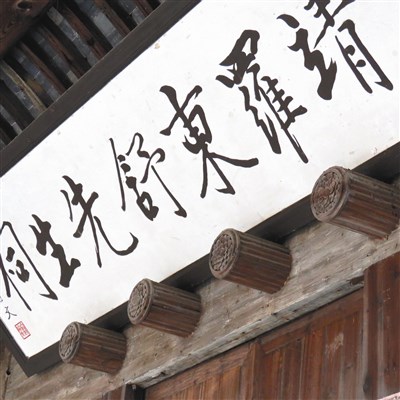 靖羅東舒先生祠